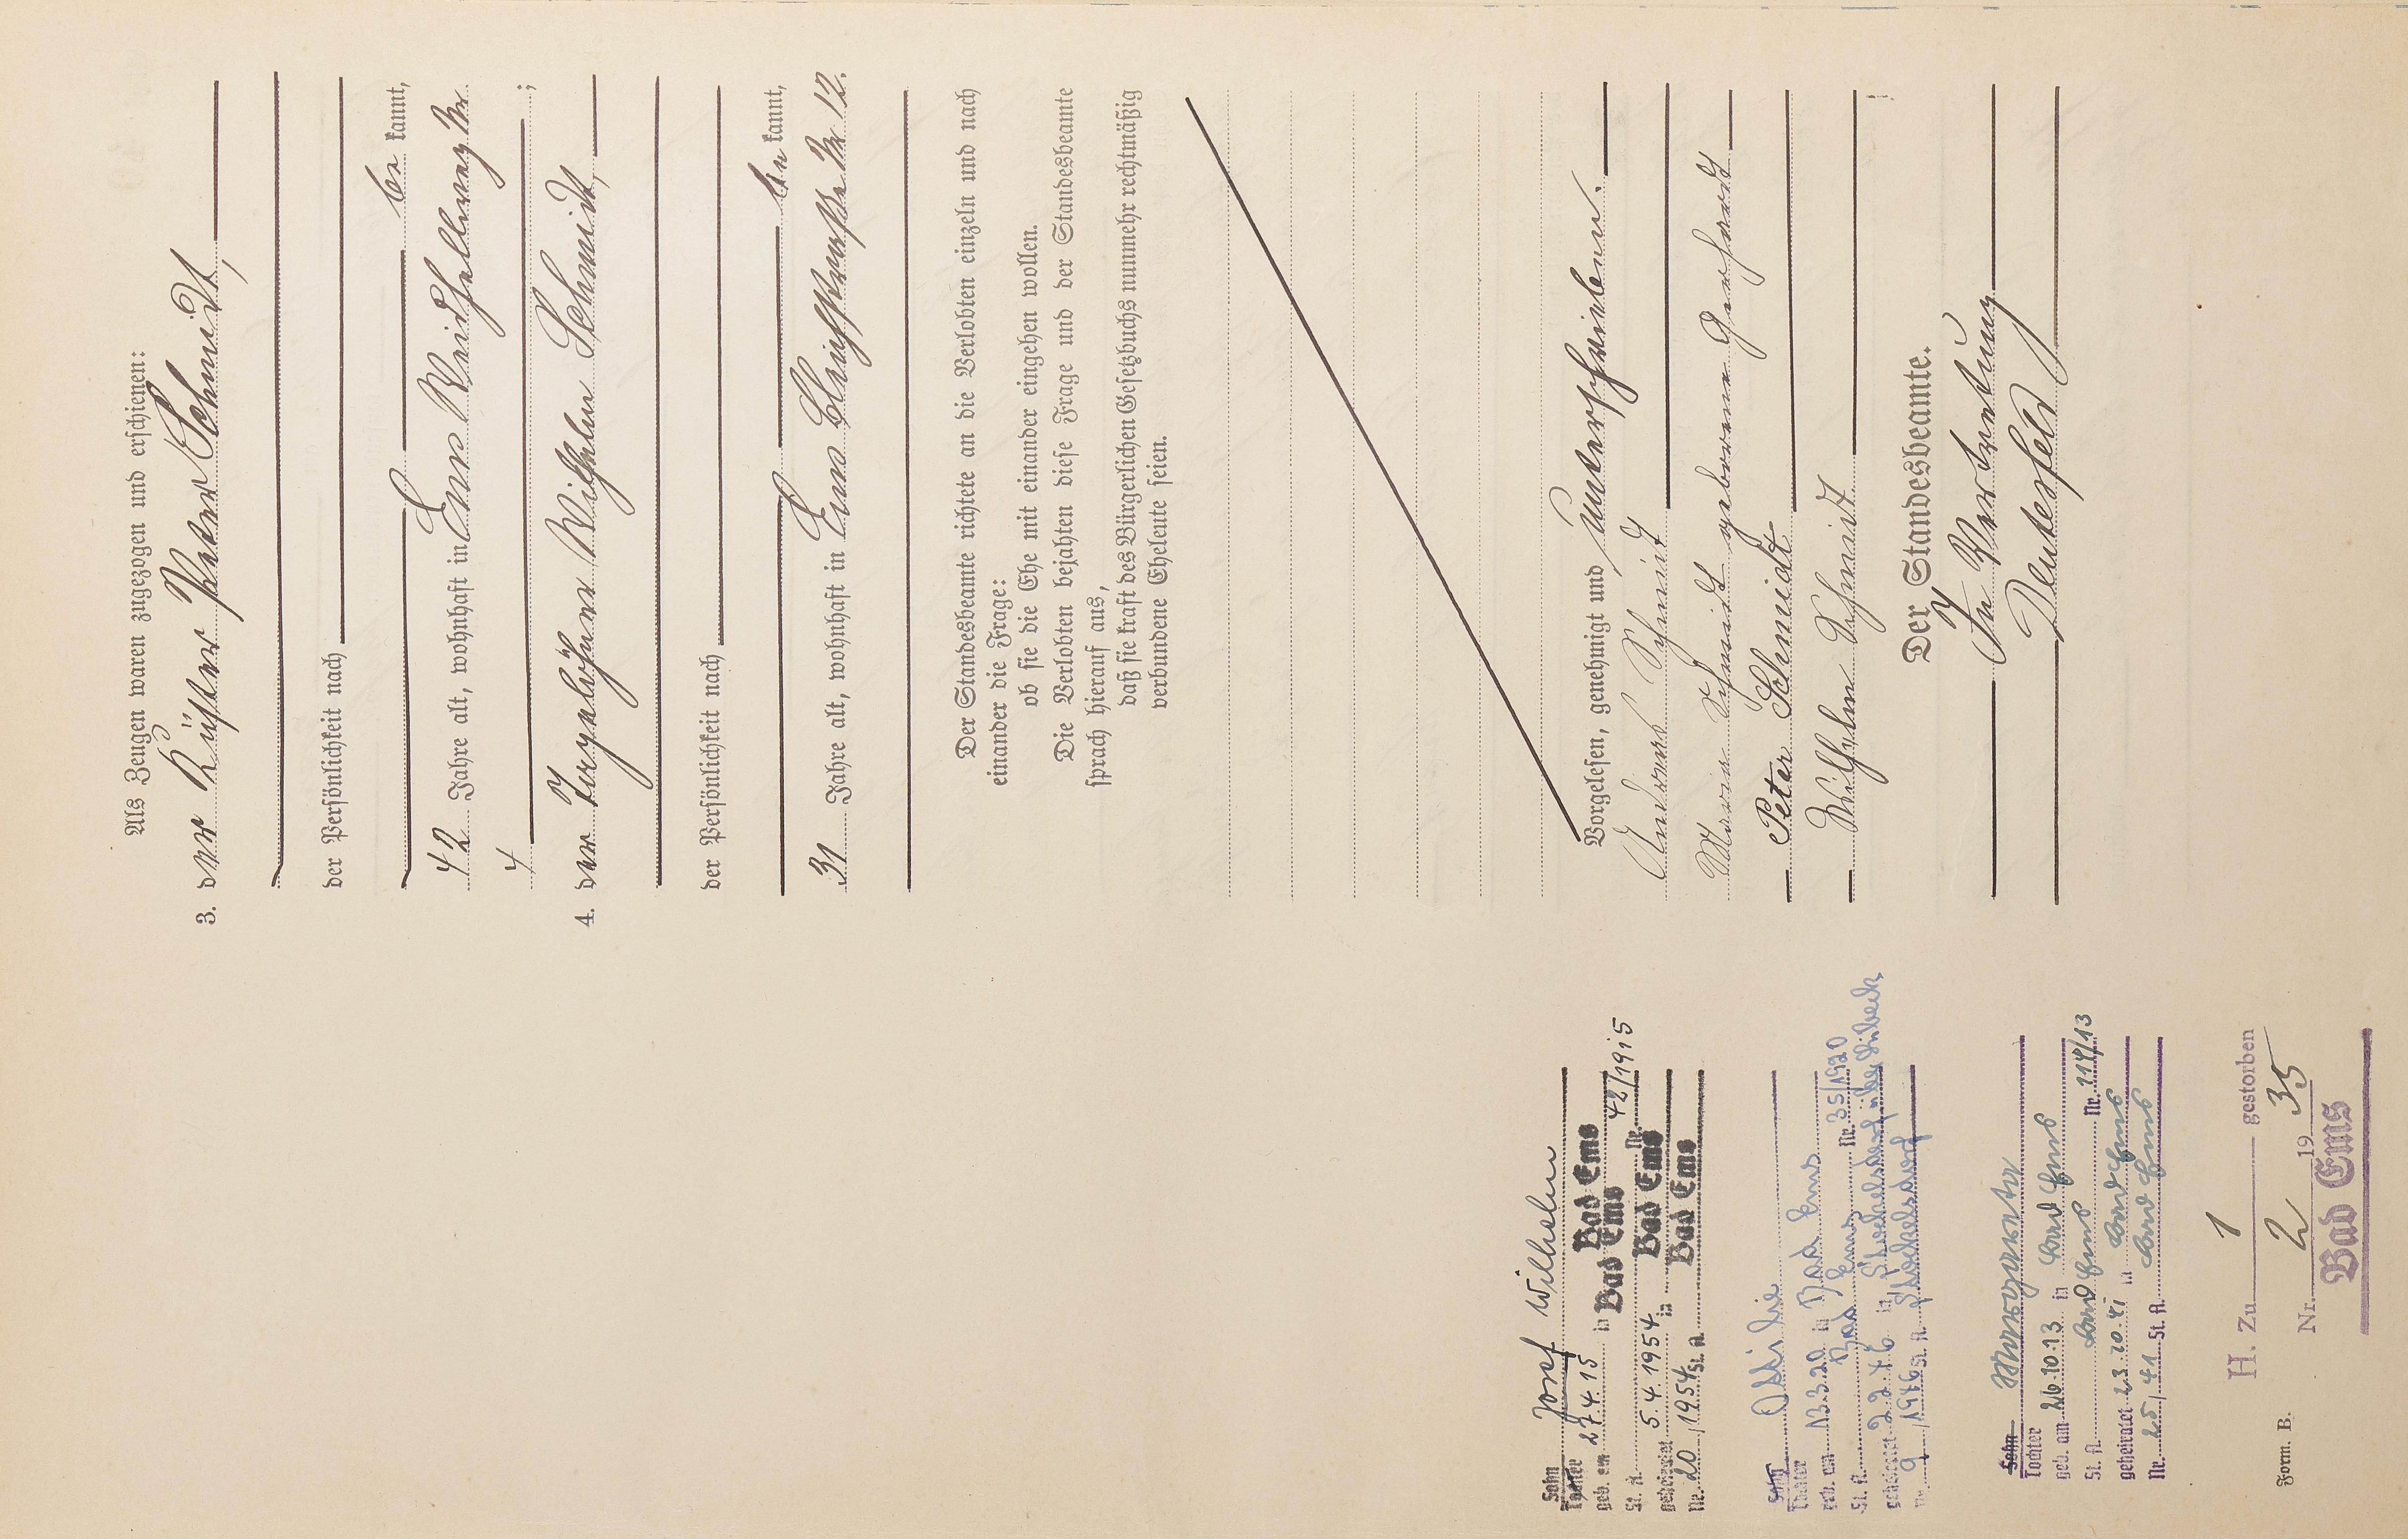 Als Zeugen waren zugezogen und erschienen:
3. der Küster Peter Schmidt,
der Persönlichkeit nach
be kannt,
42 Jahre alt, wohnhaft in Ems Weidhellweg Nr.
4 ;
4. der Ziegelöhner Wilhelm Schmidt,
der Persönlichkeit nach
be kannt,
31 Jahre alt, wohnhaft in Ems Bleichstraße Nr 12.
Der Standesbeamte richtete an die Verlobten einzeln und nach
einander die Frage:
ob sie die Ehe mit einander eingehen wollen.
Die Verlobten bejahten diese Frage und der Standesbeamte
sprach hierauf aus,
daß sie kraft des Bürgerlichen Gesetzbuchs nunmehr rechtmäßig
verbundene Eheleute seien.
Vorgelesen, genehmigt und unterschrieben.
Andreas Schmidt
Maria Schmidt geborene Gerhardt
Peter Schmidt
Wilhelm Schmidt
Der Standesbeamte.
In Vertretung
Deutesfeld
Sohn Josef Wilhelm
Tochter
geb. am 27.4.15 in Bad Ems
St. A. Bad Ems Nr. 42/1915
geheiratet 5.4.1954 in Bad Ems
Nr. 20/1954 St. A. Bad Ems
Sohn Ottilie
Tochter
geb. am 13.3.20 in Bad Ems
St. A. Bad Ems Nr. 35/1920
geheiratet 2.2.46 in Stockelsdorf über Lübeck
Nr. 9/1946 St. A. Stockelsdorf
Sohn Margareta
Tochter
geb. am 26.10.13 in Bad Ems
St. A. Bad Ems Nr. 114/13
geheiratet 23.10.41 in Bad Ems
Nr. 25/41 St. A. Bad Ems
H. Zu 1 gestorben
Nr. 2 1935
Bad Ems
Form. B.